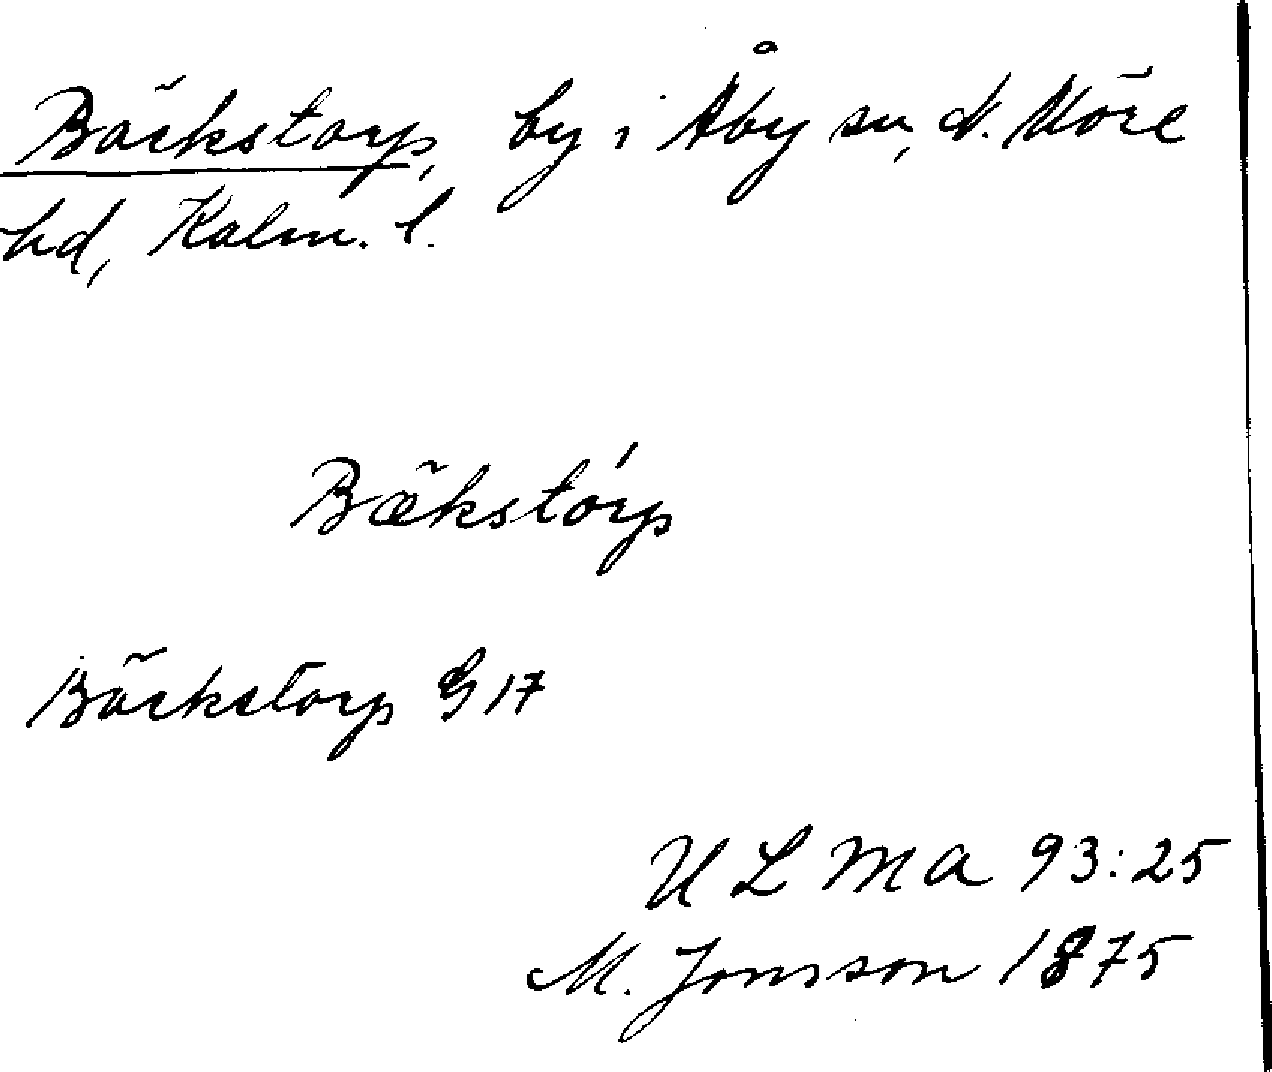 Bäckstorp, by i Åby sn, N. Möre
hd, Kalm. l.
Bækstórp
Bäckstorp G 17
ULMA 93:25
M. Jonsson 1875